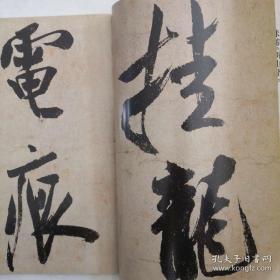 挂龍
電痕
孔夫子旧书网